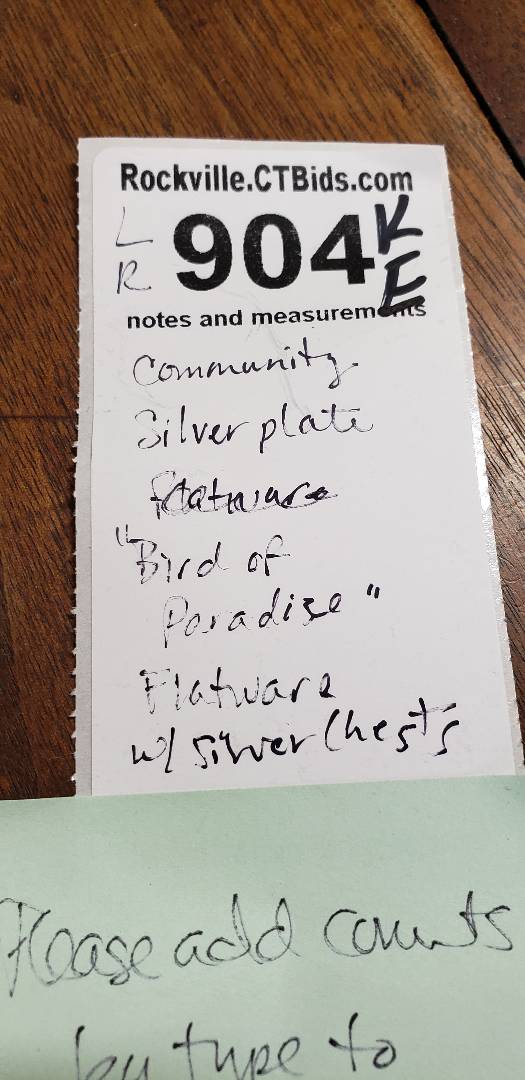 Rockville.CTBids.com
L
R
904
K
E
notes and measurements
Community
Silver plate
flatware
"Bird of
Paradise"
Flatware
w/ Silver Chests
Please add counts
by type to